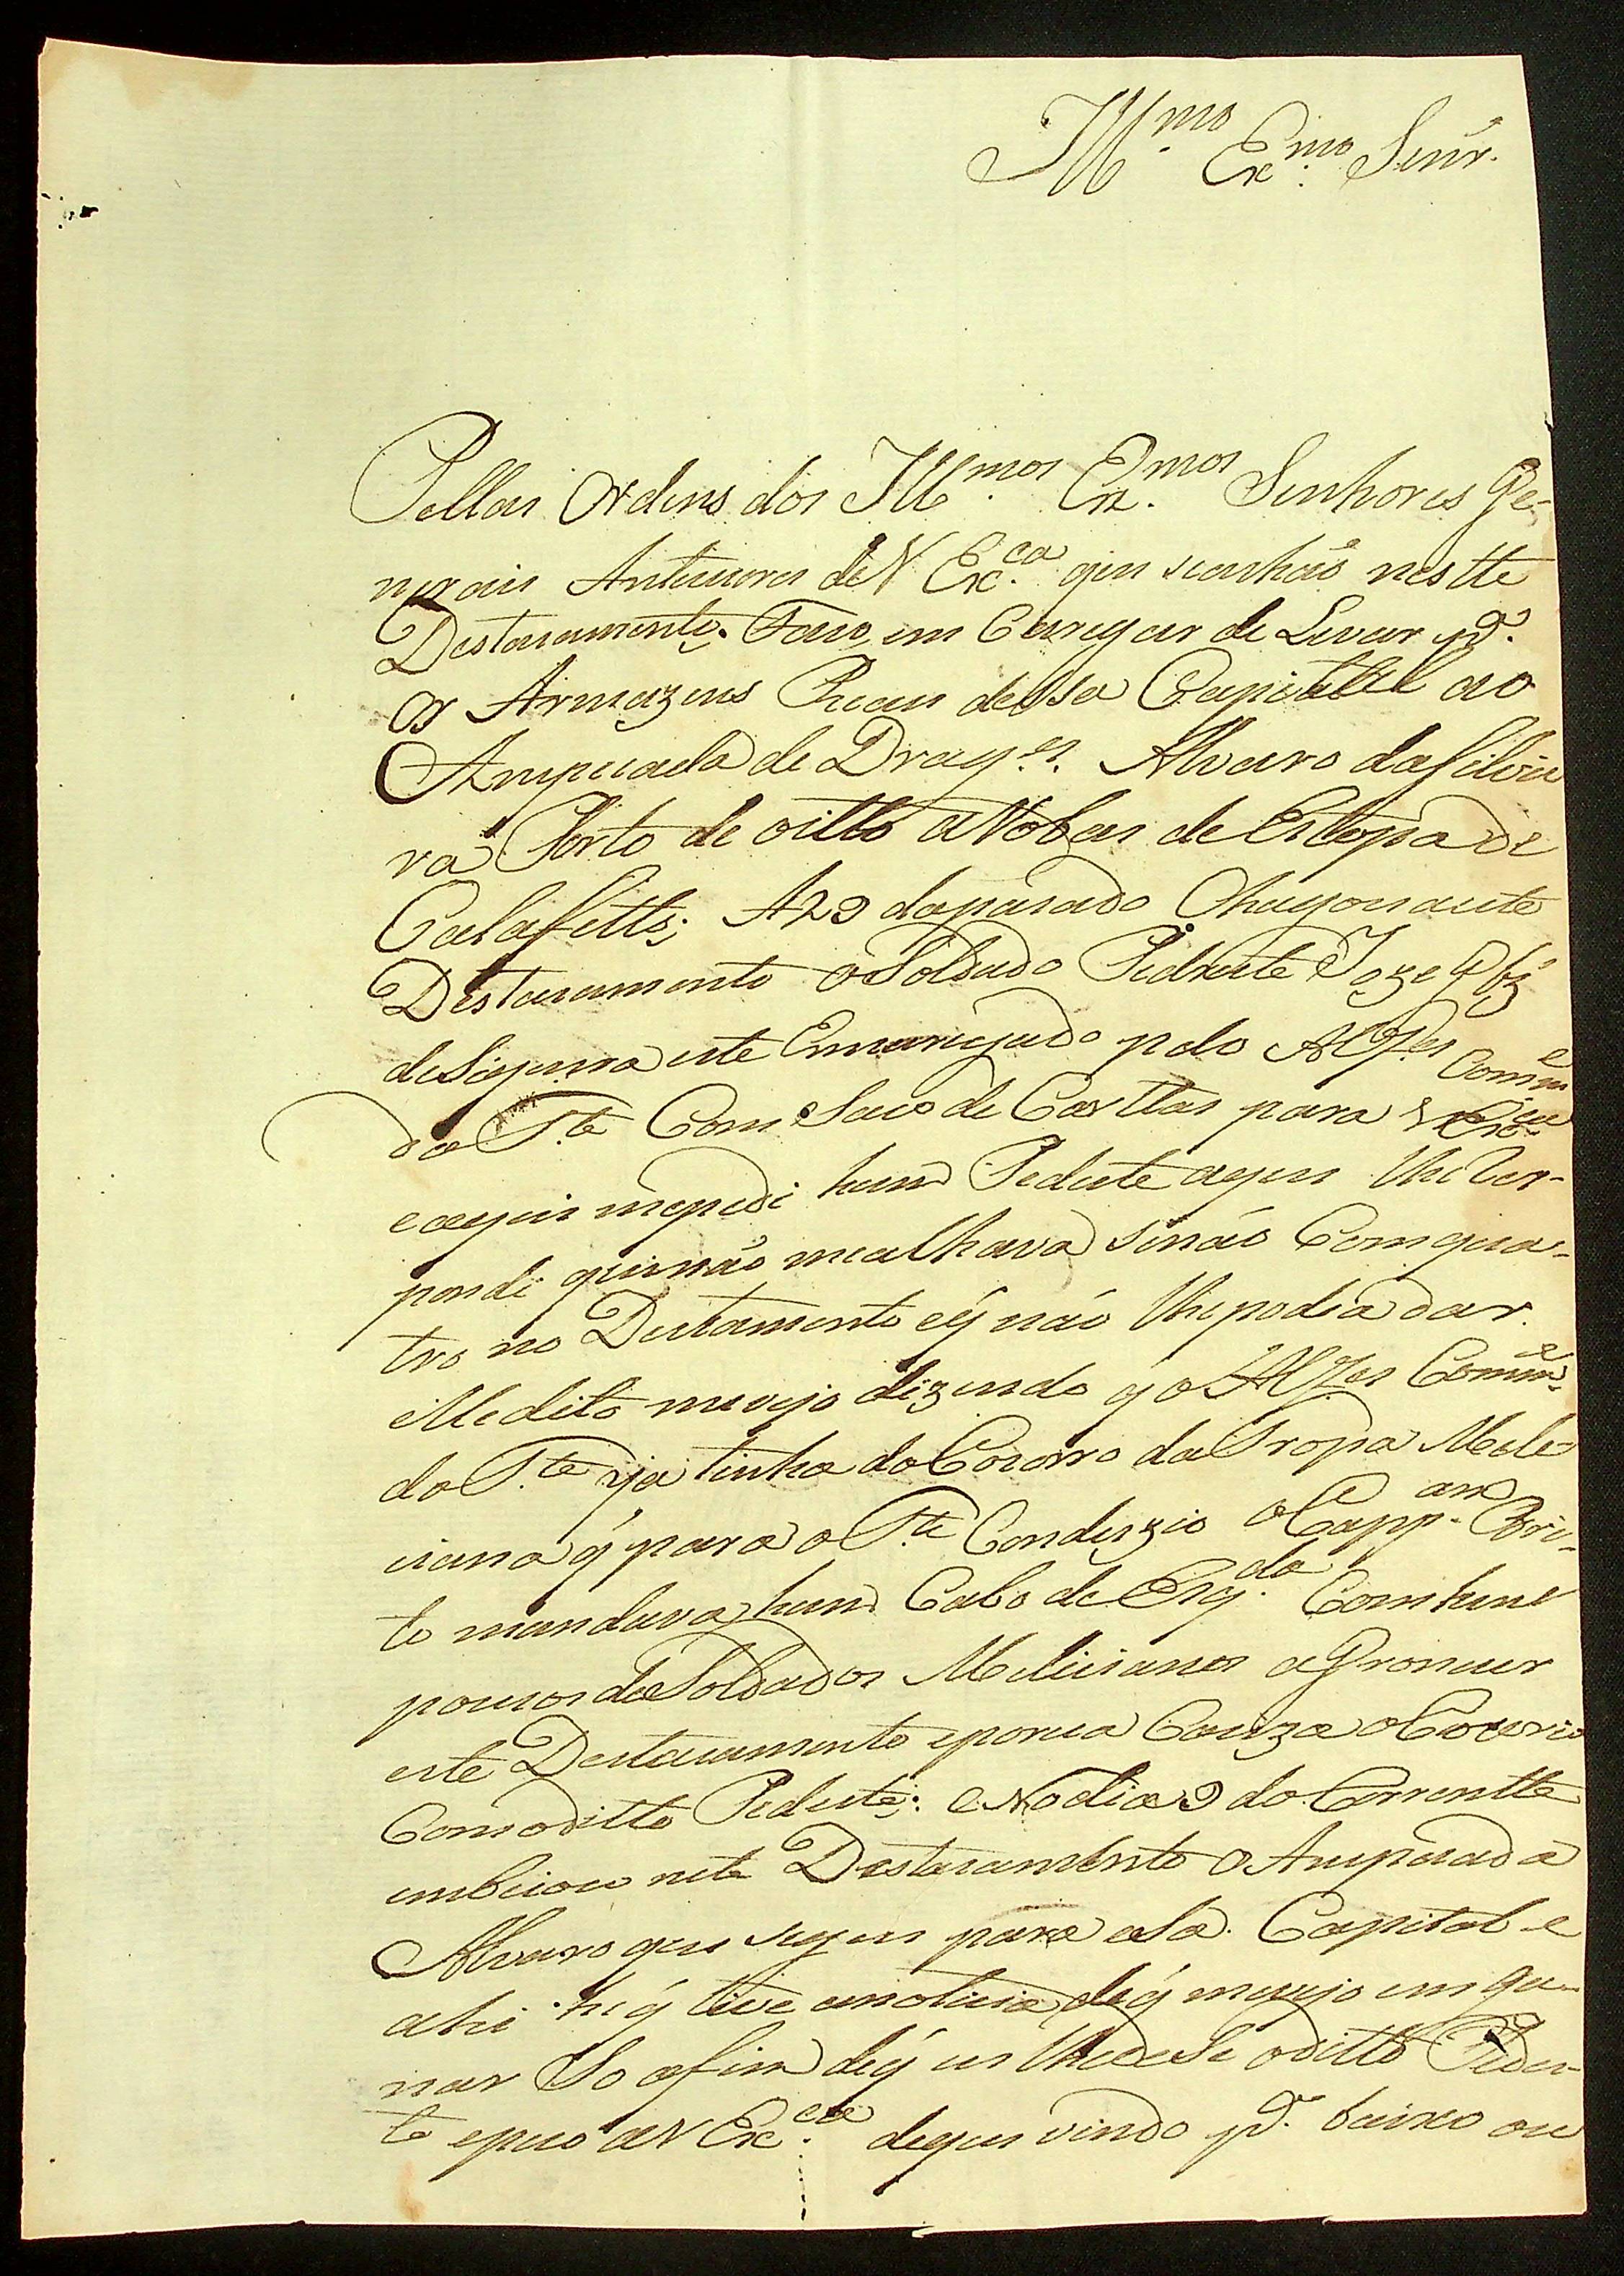 Ill.mo Ex.mo Senr.
Pellas Ordens dos Ill.mos Ex.mos Senhores Ge-
nerais Antecesores de V Ex.ca que seachão nestte
Destacamento. Faço em Caregar de Levar p.a
Os Armazens Reais dessa Capitall ao
Anspecada de Drag.es Alvaro da Silvei
ra Porto de oitto aRobas de Estopa de
Calafetto; A 29 dopasado Chegou aeste
Destacamento oSoldado Pedestre Joze
este Encaregado pelo Alferes Com.e
do Saco de Carttas para V Ex.cia
eaqui mepedi hum Pedeste aque lhe Res-
pondi quenão meachava senão Comqua-
tro no Destacamento eq̃ não lhepodia dar.
elle dito dizendo q̃ o Alferes Com.e
do ja tinha da Tropa Mele
ciana q̃ para o Conduzio oCapp.am Bri-
to mandava hum Cabo de Esq.da Comhuns
poucos deSoldados Melicianos
este Destacamento eporca Couza
Comoditto Pedeste; eNodia 9 do Correntte
neste Destacamento o Anspecada
Alvaro que segue para esa Capital e
ahi he q̃ tive anoticia deq̃ em ga
nar So afim deq̃ eu lhedese oditto Pedes-
te epeco aV Ex.cia deque vindo p.a baixo ou